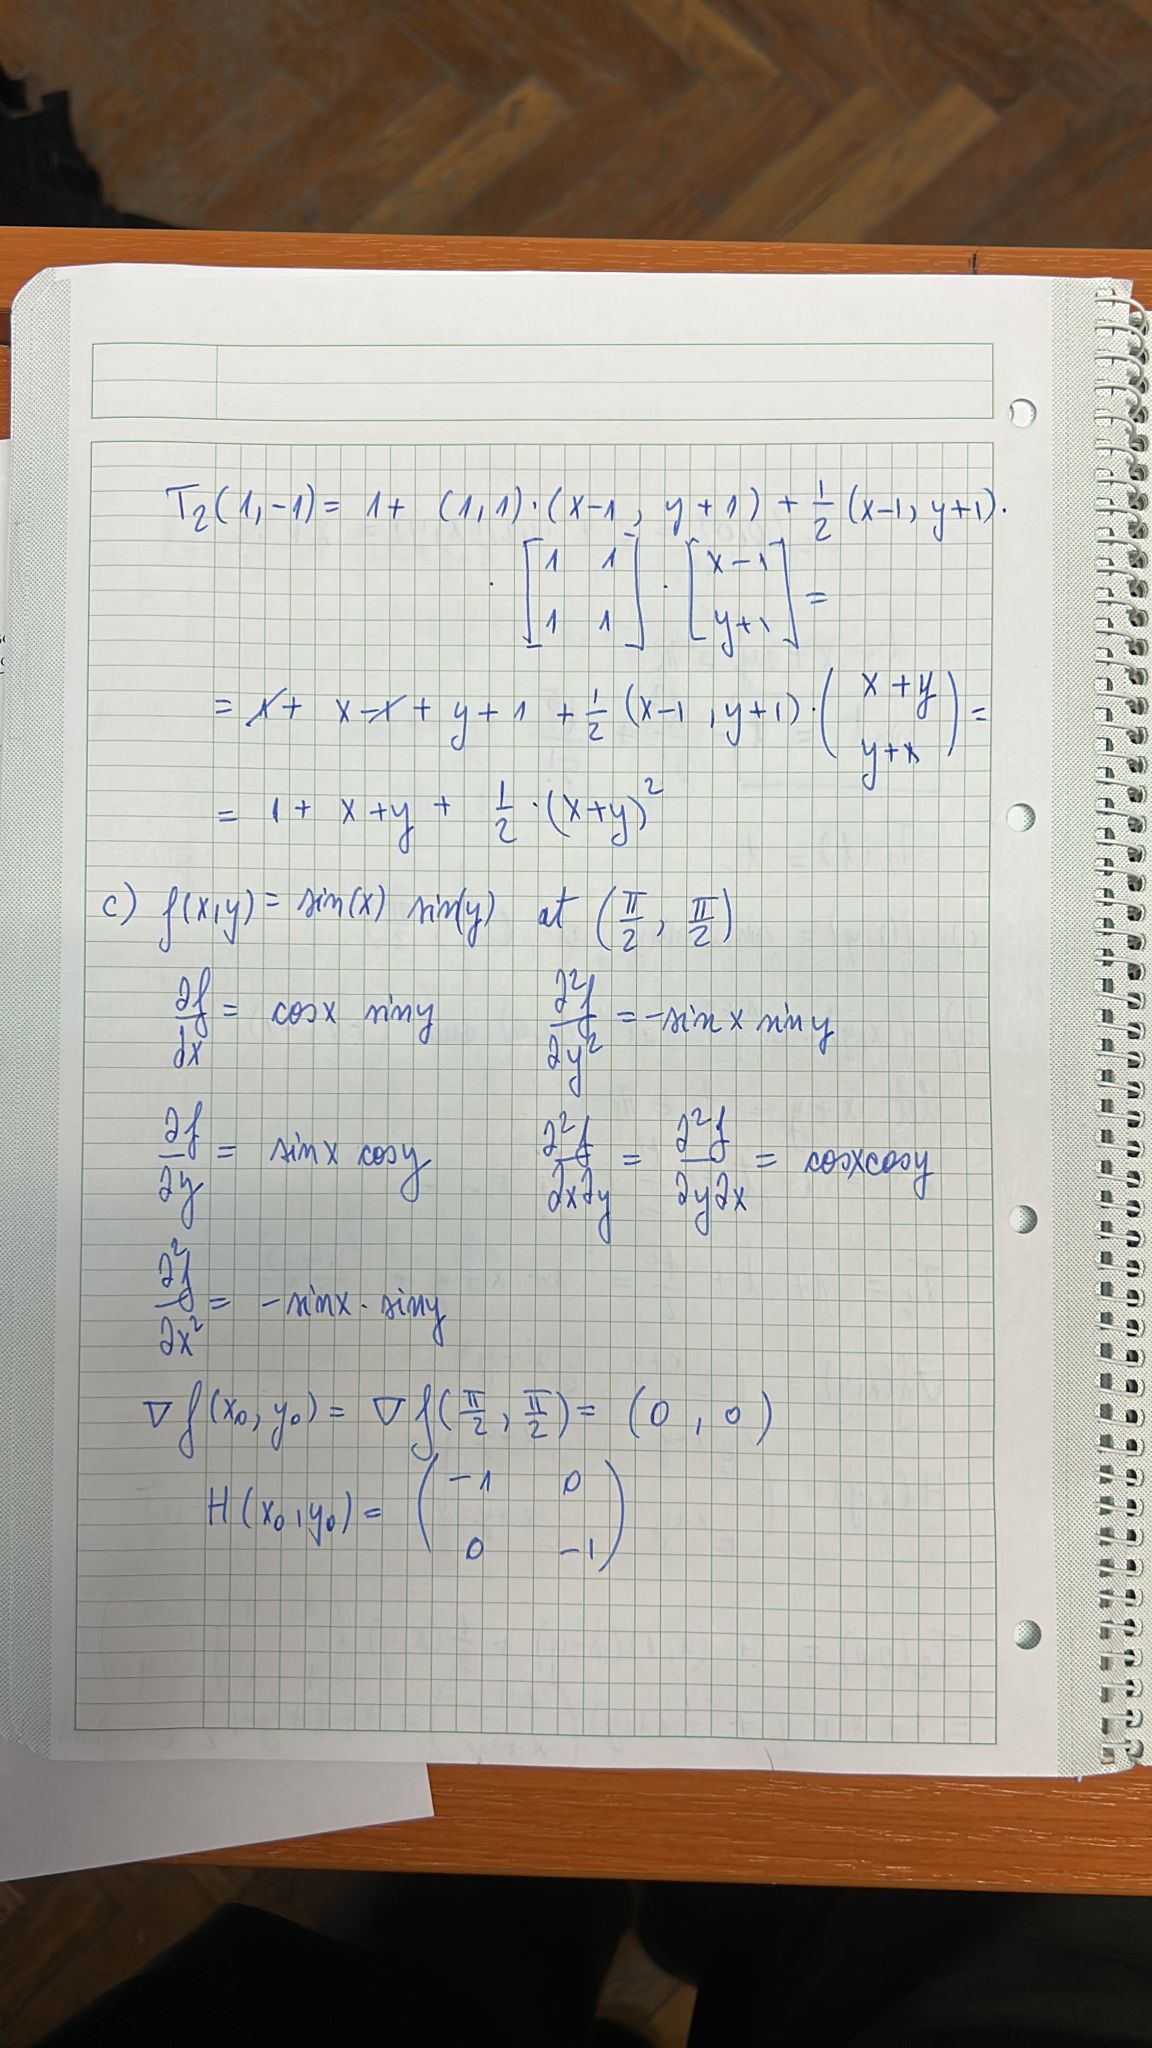 T₂(1,-1) = 1 + (1,1)·(x-1, y+1) + 1/2 (x-1, y+1)·
· [1 1; 1 1] · [x-1; y+1] =
= 1 + x-1 + y+1 + 1/2 (x-1, y+1)·(x+y; y+x) =
= 1 + x+y + 1/2 ·(x+y)²
c) f(x,y) = sin(x) sin(y) at (π/2, π/2)
∂f/∂x = cosx siny ∂²f/∂y² = -sinx siny
∂f/∂y = sinx cosy ∂²f/∂x∂y = ∂²f/∂y∂x = cosxcosy
∂²f/∂x² = -sinx · siny
∇f(x₀,y₀) = ∇f(π/2, π/2) = (0, 0)
H(x₀,y₀) = (-1 0; 0 -1)